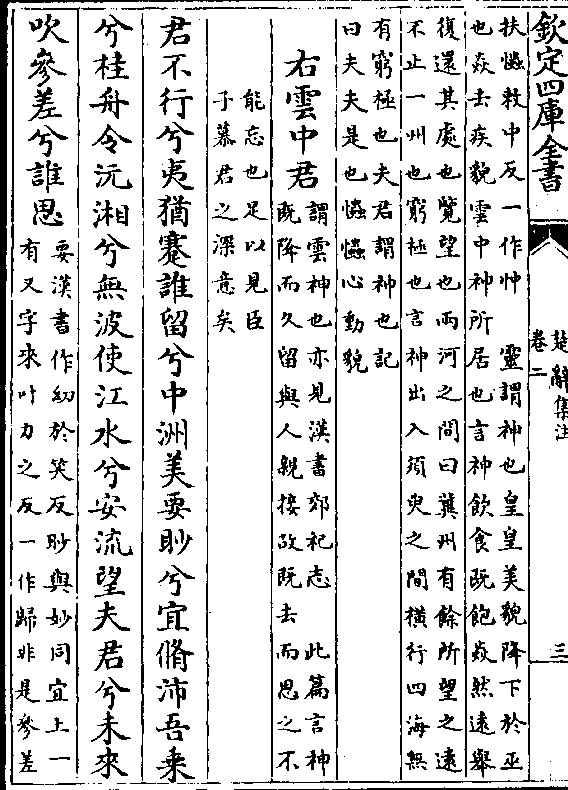 欽定四庫全書
楚辭集注
卷二
三
扶𢥞敕中反一作忡 靈謂神也皇皇美貌降下於巫
也焱去疾貌雲中神所居也言神飲食既飽焱然遠舉
復還其處也覽望也兩河之間曰冀州有餘所望之遠
不止一州也窮極也言神出入須臾之間橫行四海無
有窮極也夫君謂神也記
曰夫夫是也𢥞𢥞心動貌
右雲中君
謂雲神也亦見漢書郊祀志 此篇言神
既降而久留與人親接故既去而思之不
能忘也足以見臣
子慕君之深意矣
君不行兮夷猶蹇誰留兮中洲美要眇兮宜脩沛吾乗
兮桂舟令沅湘兮無波使江水兮安流望夫君兮未來
吹參差兮誰思
要漢書作㓜於笑反眇與妙同宜上一
有又字來叶力之反一作歸非是參差